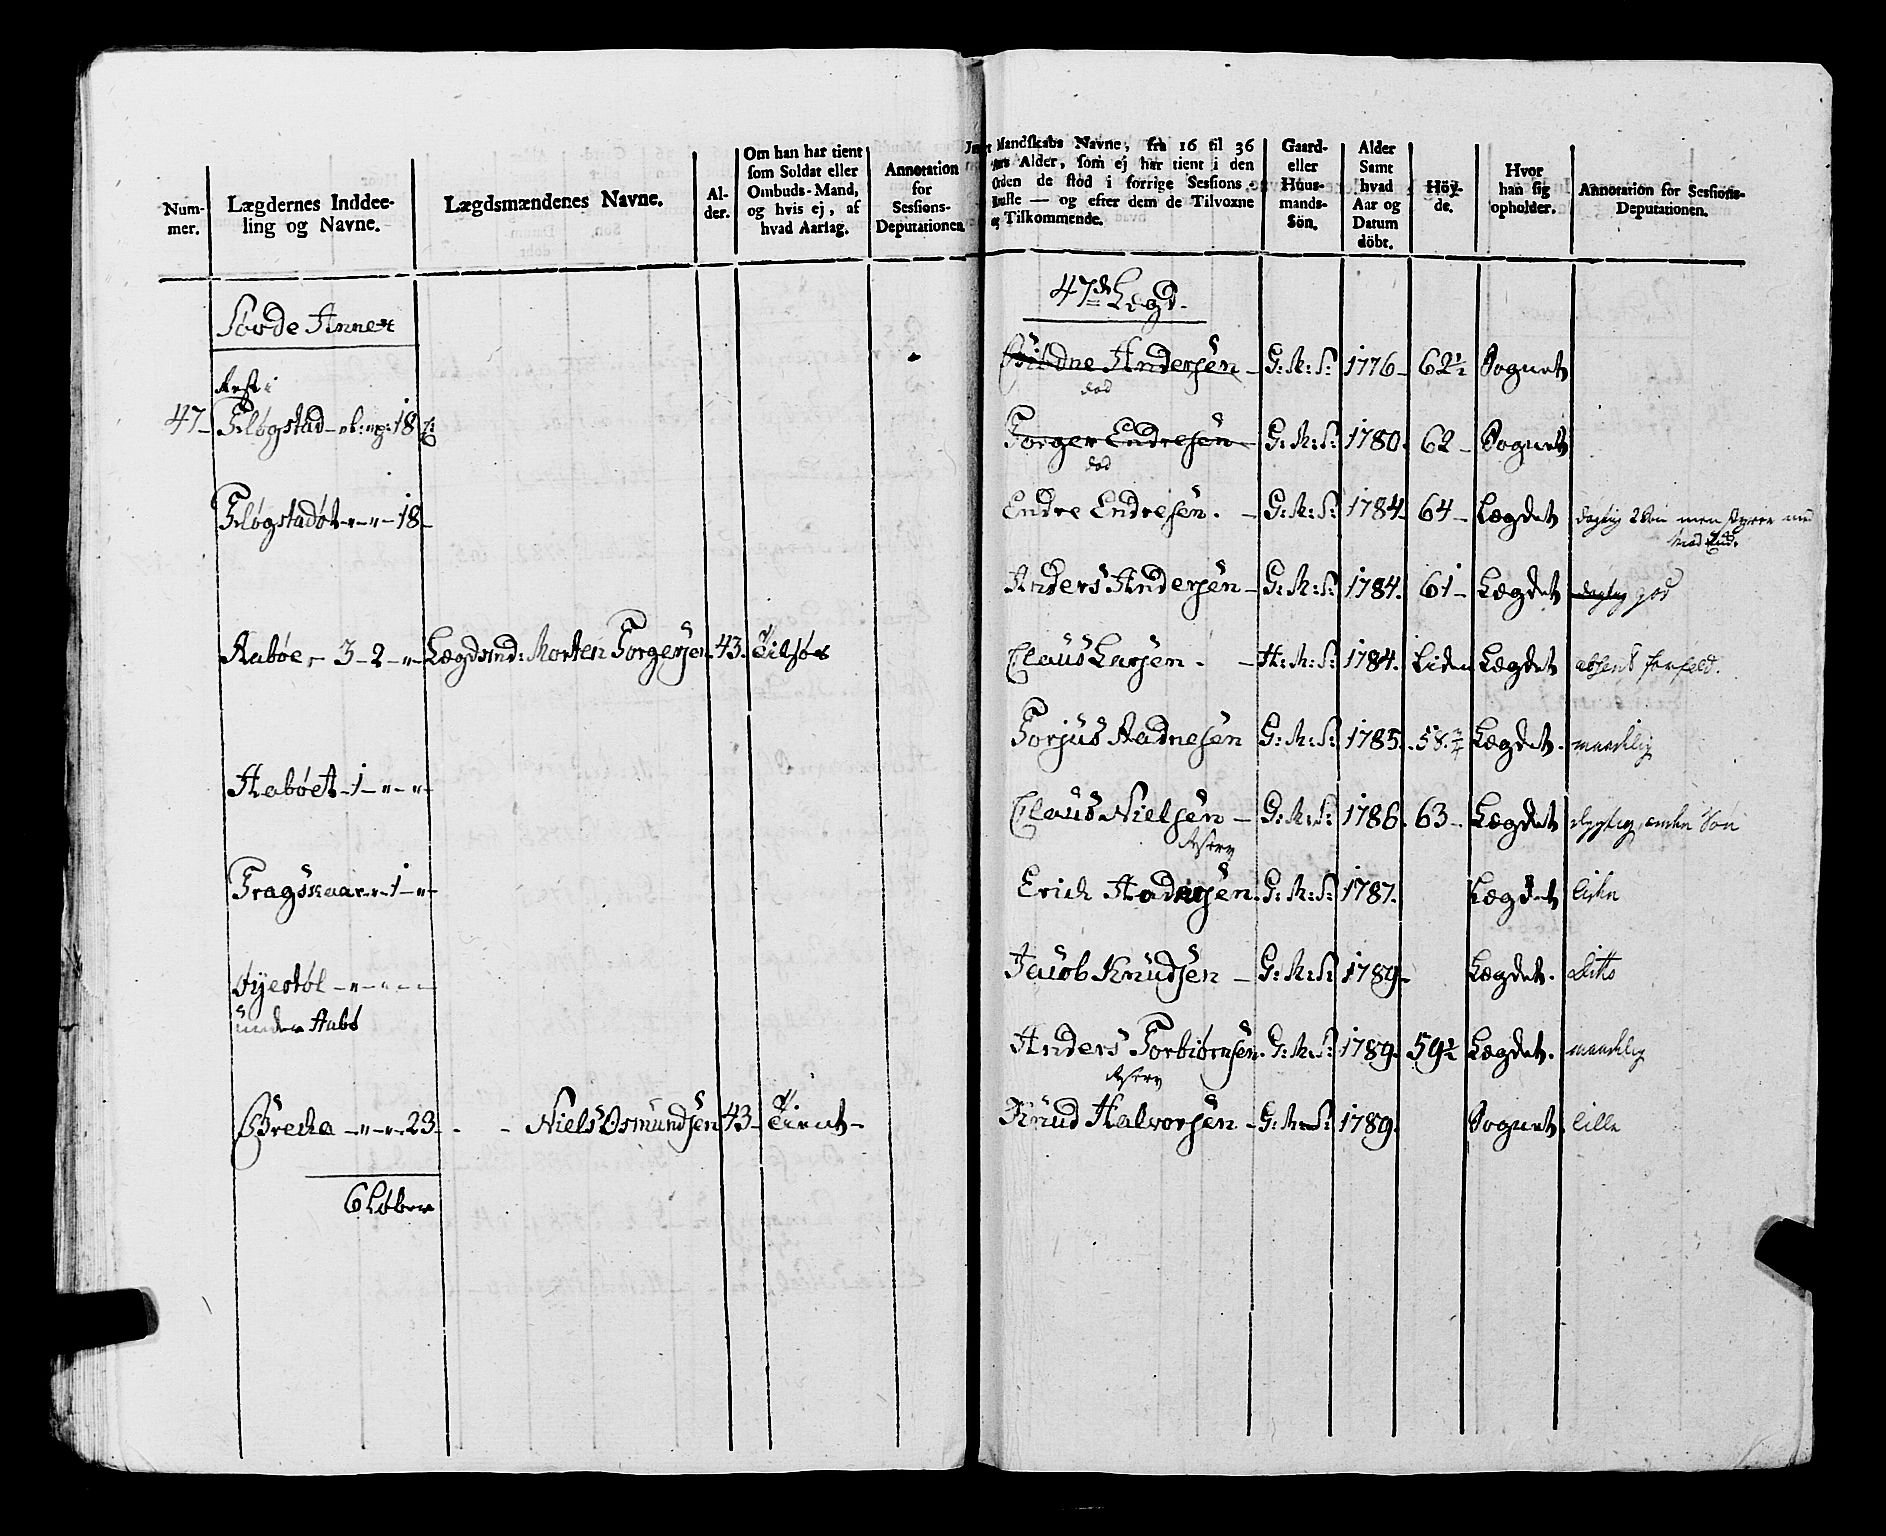 Num-
mer.
Lægdernes Inddee-
ling og Navne.
Lægdsmændenes Navne.
Al-
der.
Om han har tient
som Soldat eller
Ombuds-Mand,
og hvis ej, af
hvad Aarsag.
Annotation
for
Sessions-
Deputationen.
Sørde Annex
Rest i
47- Fløgstad 18
Fløgstadøt 18
Aabøe 3-2- Lægdsmd: Morten Torgersen 43.
Aabøet 1
Tragskaar 1
Øyestøl
under Aabø
Brecha 23 Niels Osmundsen 43 Tient
6 Løber
Mandskabs Navne, fra 16 til 36
Aars Alder, som ej har tient i den
Orden de stod i forrige Sessions-
Rulle — og efter dem de Tilvoxne
og Tilkommende.
Gaard-
eller
Huus-
mands-
Sön.
Alder
Samt
hvad
Aar og
Datum
döbt.
Höy-
de.
Hvor
han sig
opholder.
Annotation for Sessions-
Deputationen.
47de Lægd.
Andersen G: M: S: 1776 62½ Sognet
død
Torger Endresen G: M: S: 1780. 62 Sognet
død
Endre Endresen. G: M: S: 1784 64 Lægdet
Anders Andersen G: M: S: 1784. 61 Lægdet
Claus Larsen. H: M: S: 1784. Liden Lægdet absent
Torjus Aadnesen G: M: S: 1785. 58¾ Lægdet. maadelig
Claus Nielsen G: M: S: 1786. 63 Lægdet
Reserv
Erich Andersen. G: M: S: 1787. Lægdet liden
Jacob Knudsen G: M: S: 1789 Lægdet. Ditto
Anders Torbiørnsen. G: M: S: 1789. 59½ Lægdet. maadelig
Reserv
Knud Halvorsen G: M: S: 1789. Sognet. lille